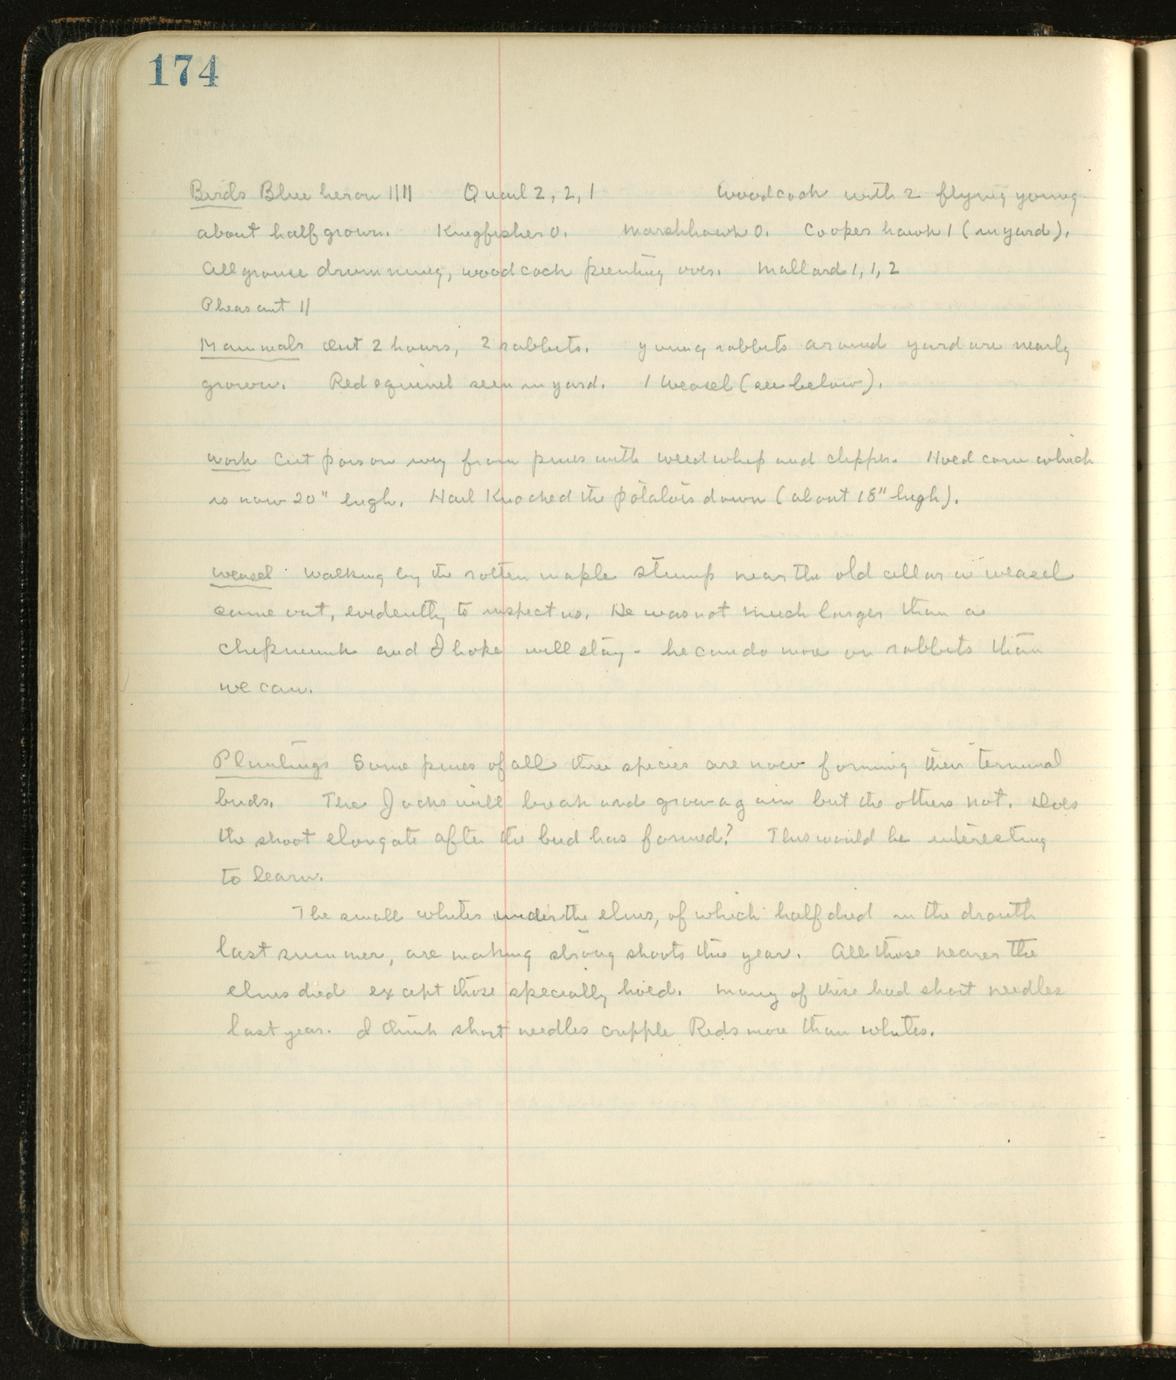 174
Birds Blue heron 1111 Quail 2, 2, 1 Woodcock with 2 flying young
about half grown. Kingfisher 0. Marshhawk 0. Coopers hawk 1 (in yard).
All grouse drumming, woodcock peenting over. Mallard 1, 1, 2
Pheasant 11
Mammals Out 2 hours, 2 rabbits. Young rabbits around yard are nearly
grown. Red squirrel seen in yard. 1 Weasel (see below).
Work Cut poison ivy from pines with weed whip and clipper. Hoed corn which
is now 20" high. Hail knocked the potatoes down (about 18" high).
Weasel Walking by the rotten maple stump near the old cellar a weasel
came out, evidently to inspect us. He was not much larger than a
chipmunk and I hope will stay - he can do more on rabbits than
we can.
Plantings Some pines of all three species are now forming their terminal
buds. The Jacks will break and grow again but the others not. Does
the shoot elongate after the bud has formed? This would be interesting
to learn.
The small whites under the elms, of which half died in the drouth
last summer, are making strong shoots this year. All those nearer the
elms died except those specially hoed. Many of these had short needles
last year. I think short needles cripple Reds more than whites.